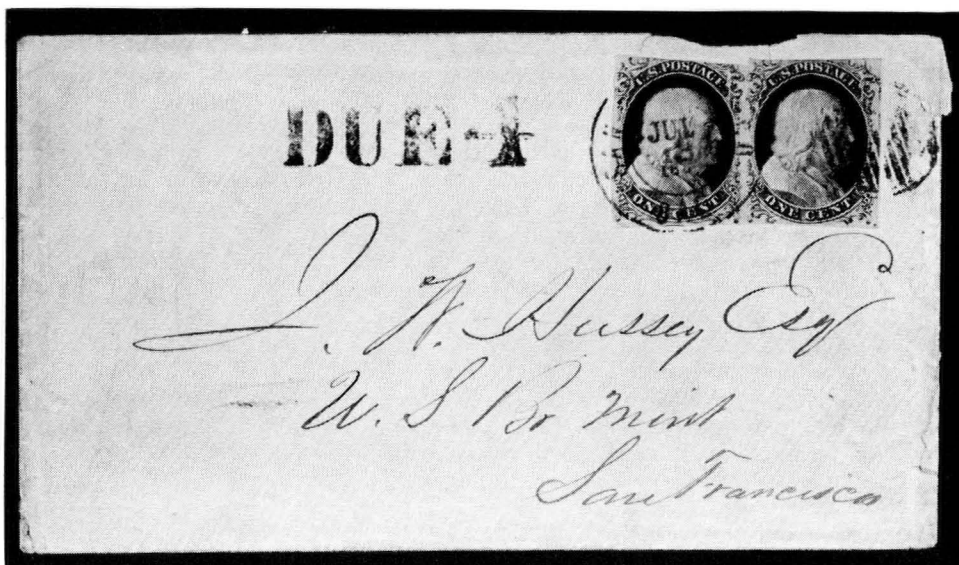 DUE-1
U.S. POSTAGE
ONE CENT
U.S. POSTAGE
ONE CENT
JUL
J. W. Hussey Esq
U. S Br Mint
San Francisco